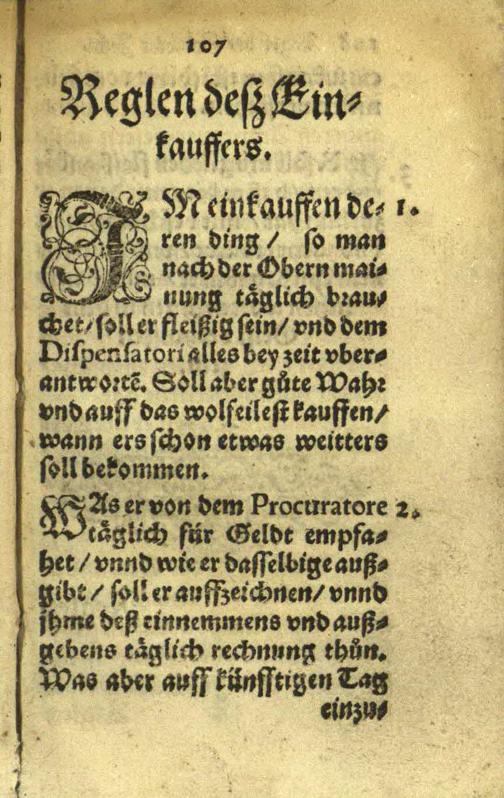 107
Reglen deß Ein-
kauffers.
IM einkauffen de- 1.
ren ding / so man
nach der Obern mai-
nung täglich brau-
chet / soll er fleißig sein / vnd dem
Dispensatori alles bey zeit vber-
antwortẽ. Soll aber gůte Wahr
vnd auff das wolfeilest kauffen /
wann ers schon etwas weitters
soll bekommen.
WAs er von dem Procuratore 2.
täglich für Geldt empfa-
het / vnnd wie er dasselbige auß-
gibt / soll er auffzeichnen / vnnd
jhme deß einnemmens vnd auß-
gebens täglich rechnung thůn.
Was aber auff künfftigen Tag
einzu-